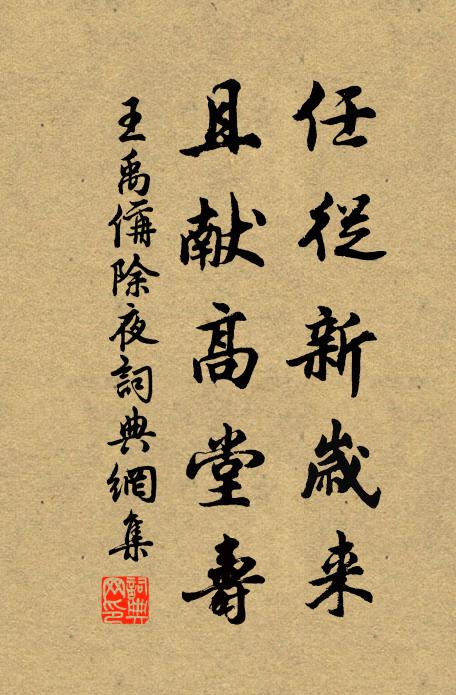 任從新歲来
且献高堂壽
王禹偁除夜詞典網集
詞典网印